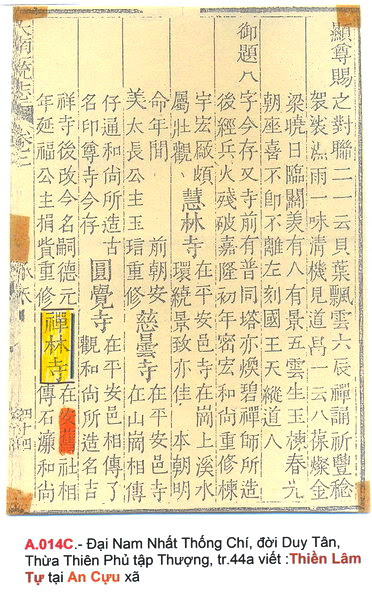 顯尊賜之對聯二一云貝葉飄雲六辰禪誦祈豐稔
袈裟 雨一味清機見道昌一云八葆燦金
梁曉日臨關美有八有景五雲生玉棟春光
朝座喜不卽不離左刻國王天縱道人
御題八字今存又寺前有普同塔亦煥碧禪師所造
後經兵火殘破嘉隆初年密宏和尚重修棟
宇宏敞頗
屬壯觀
慧林寺
在平安邑寺在崗上溪水
環繞景致亦佳 本朝明
命年間 前朝安
美太長公主玉琂重修
慈曇寺
在平安邑寺
在山崗相傳
仔通和尚所造古
名印尊寺今存
圓覺寺
在平安邑相傳了
觀和尚所造名吉
祥寺後改今名嗣德元
年延福公主捐貲重修
禪林寺
在安舊社相
傳石濂和尚
大南一統志
四十四
A.014C.- Đại Nam Nhất Thống Chí, đời Duy Tân,
Thừa Thiên Phủ tập Thượng, tr.44a viết :Thiền Lâm
Tự tại An Cựu xã